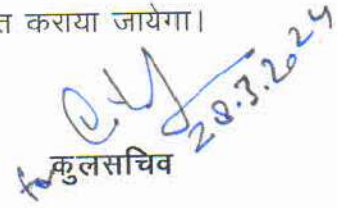 त कराया जायेगा।
28.3.2024
for कुलसचिव